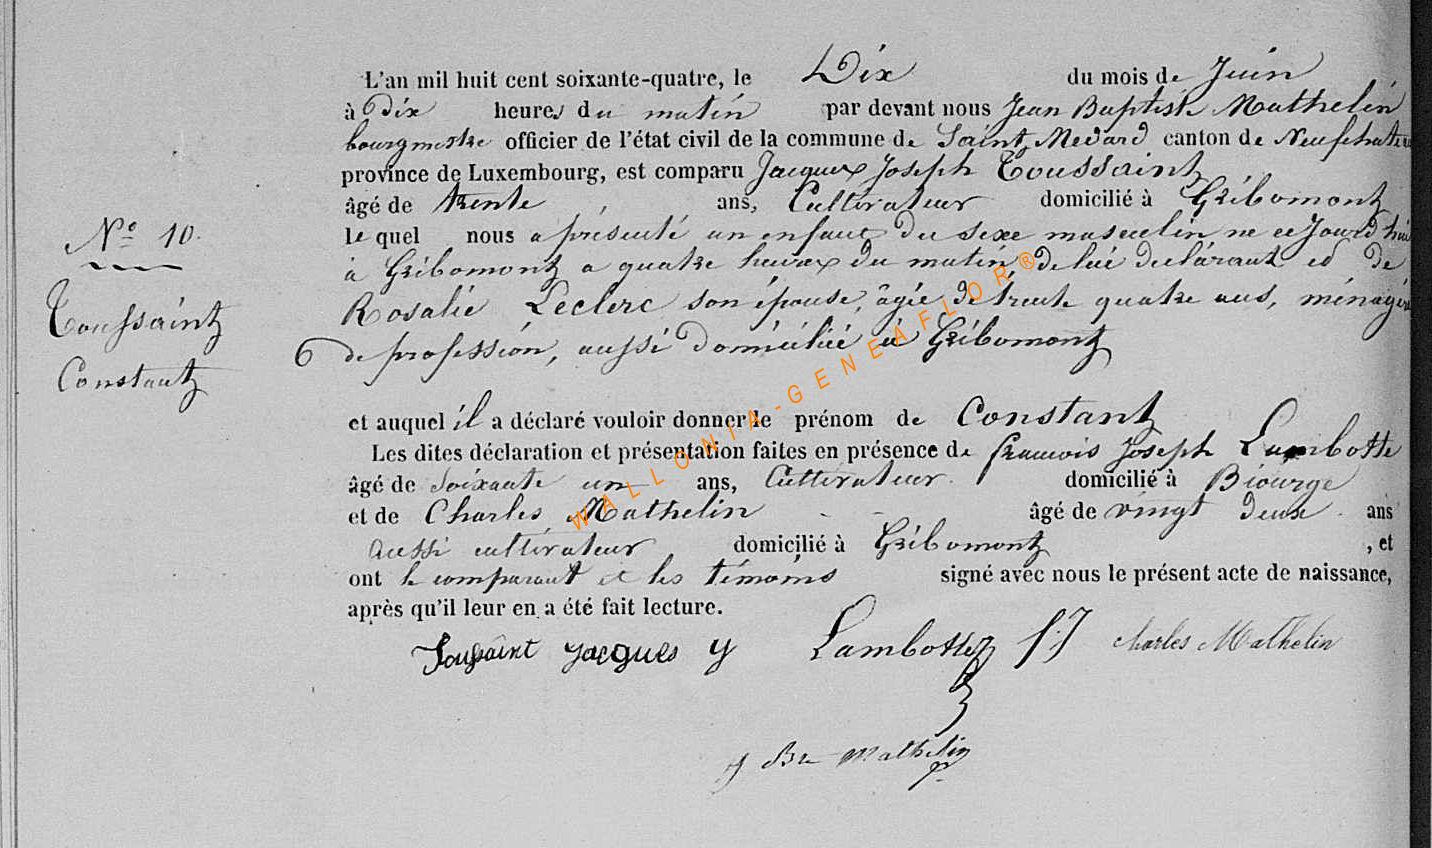 L'an mil huit cent soixante-quatre, le Dix du mois de Juin
à Dix heures du matin par devant nous Jean Baptiste Mathelin
bourgmestre officier de l'état civil de la commune de Saint Medard canton de Neufchateau
province de Luxembourg, est comparu Jacques Joseph Toussaint
âgé de trente ans, Cultivateur domicilié à Gribomont
le quel nous a présenté un enfant du sexe masculin né ce Jourd'hui
à Gribomont a quatre heures du matin, de lui déclarant et de
Rosalie Leclerc son épouse, âgée de trente quatre ans, ménagère
de profession, aussi domiciliée à Gribomont
N° 10.
Toussaint
Constant
et auquel il a déclaré vouloir donner le prénom de Constant
Les dites déclaration et présentation faites en présence de francois Joseph Lambotte
âgé de Soixante un ans, Cultivateur. domicilié à Biourge
et de Charles Mathelin - - âgé de vingt deux ans
Aussi cultivateur domicilié à Gribomont , et
ont le comparant et les témoins signé avec nous le présent acte de naissance,
après qu'il leur en a été fait lecture.
Toussaint Jacques y Lambottez f.J Charles Mathelin
J Bte Mathelin
WALLONIA-GENEAFLOR®